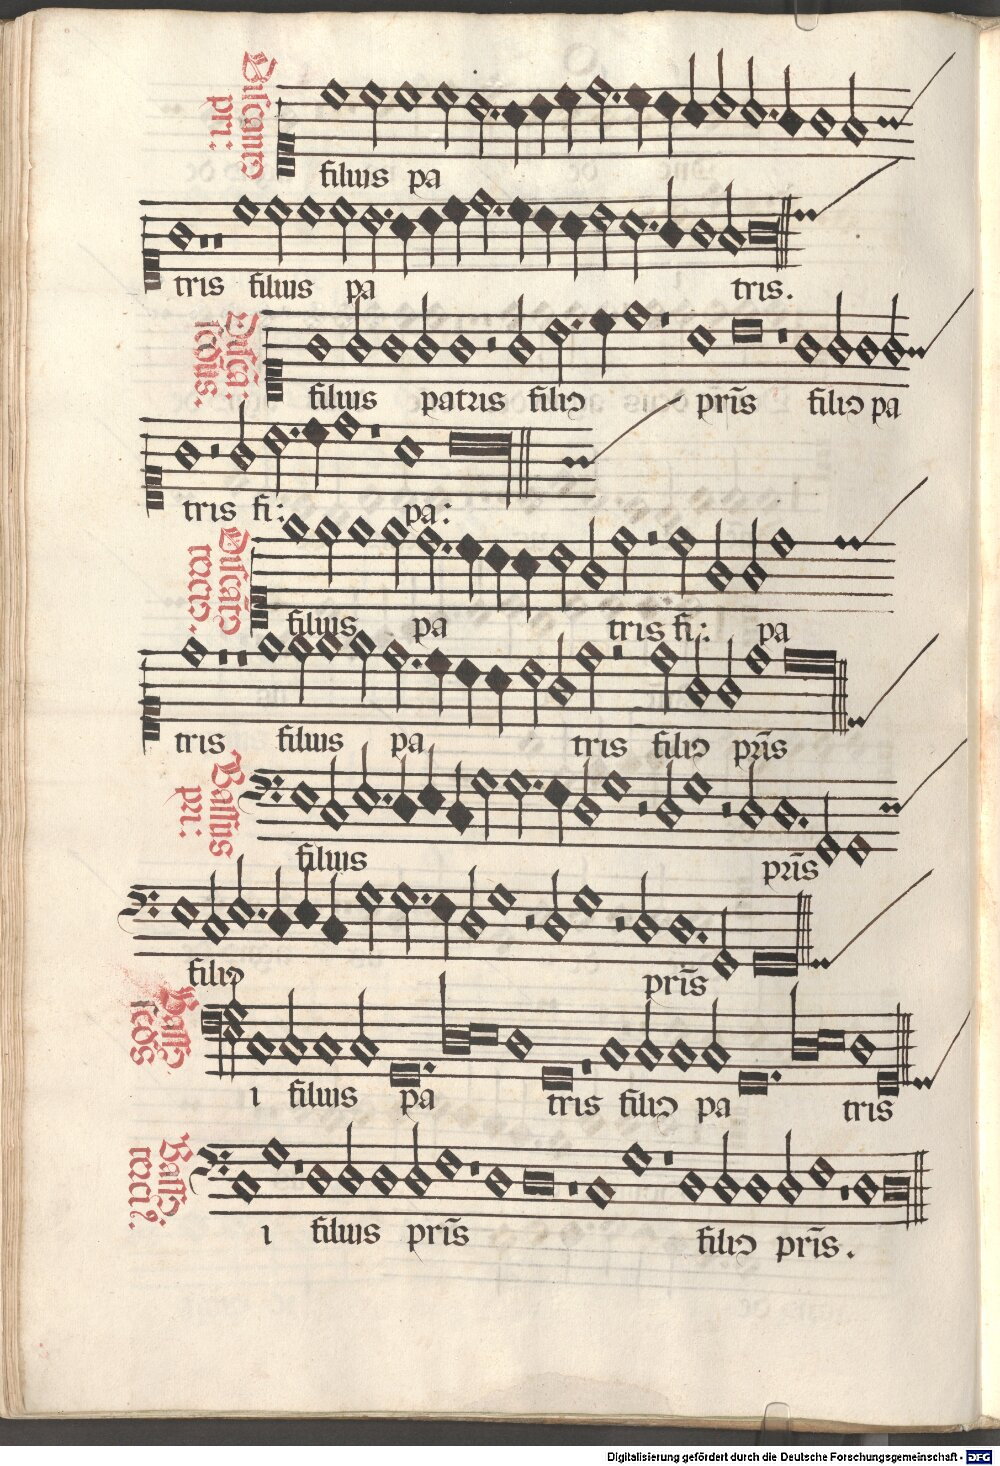 Discant9
pri:
filius pa
tris filius pa tris.
Disca:
scd9s.
filius patris fili9 pr̃is fili9 pa
tris fi: pa:
Discãt9
terci9.
filius pa tris fi: pa
tris filius pa tris fili9 pr̃is
Bassus
pri:
filius pr̃is
fili9 pr̃is
Bass9
i filius pa tris fili9 pa tris
Bass9
i filius pr̃is fili9 pr̃is.
Digitalisierung gefördert durch die Deutsche Forschungsgemeinschaft - DFG